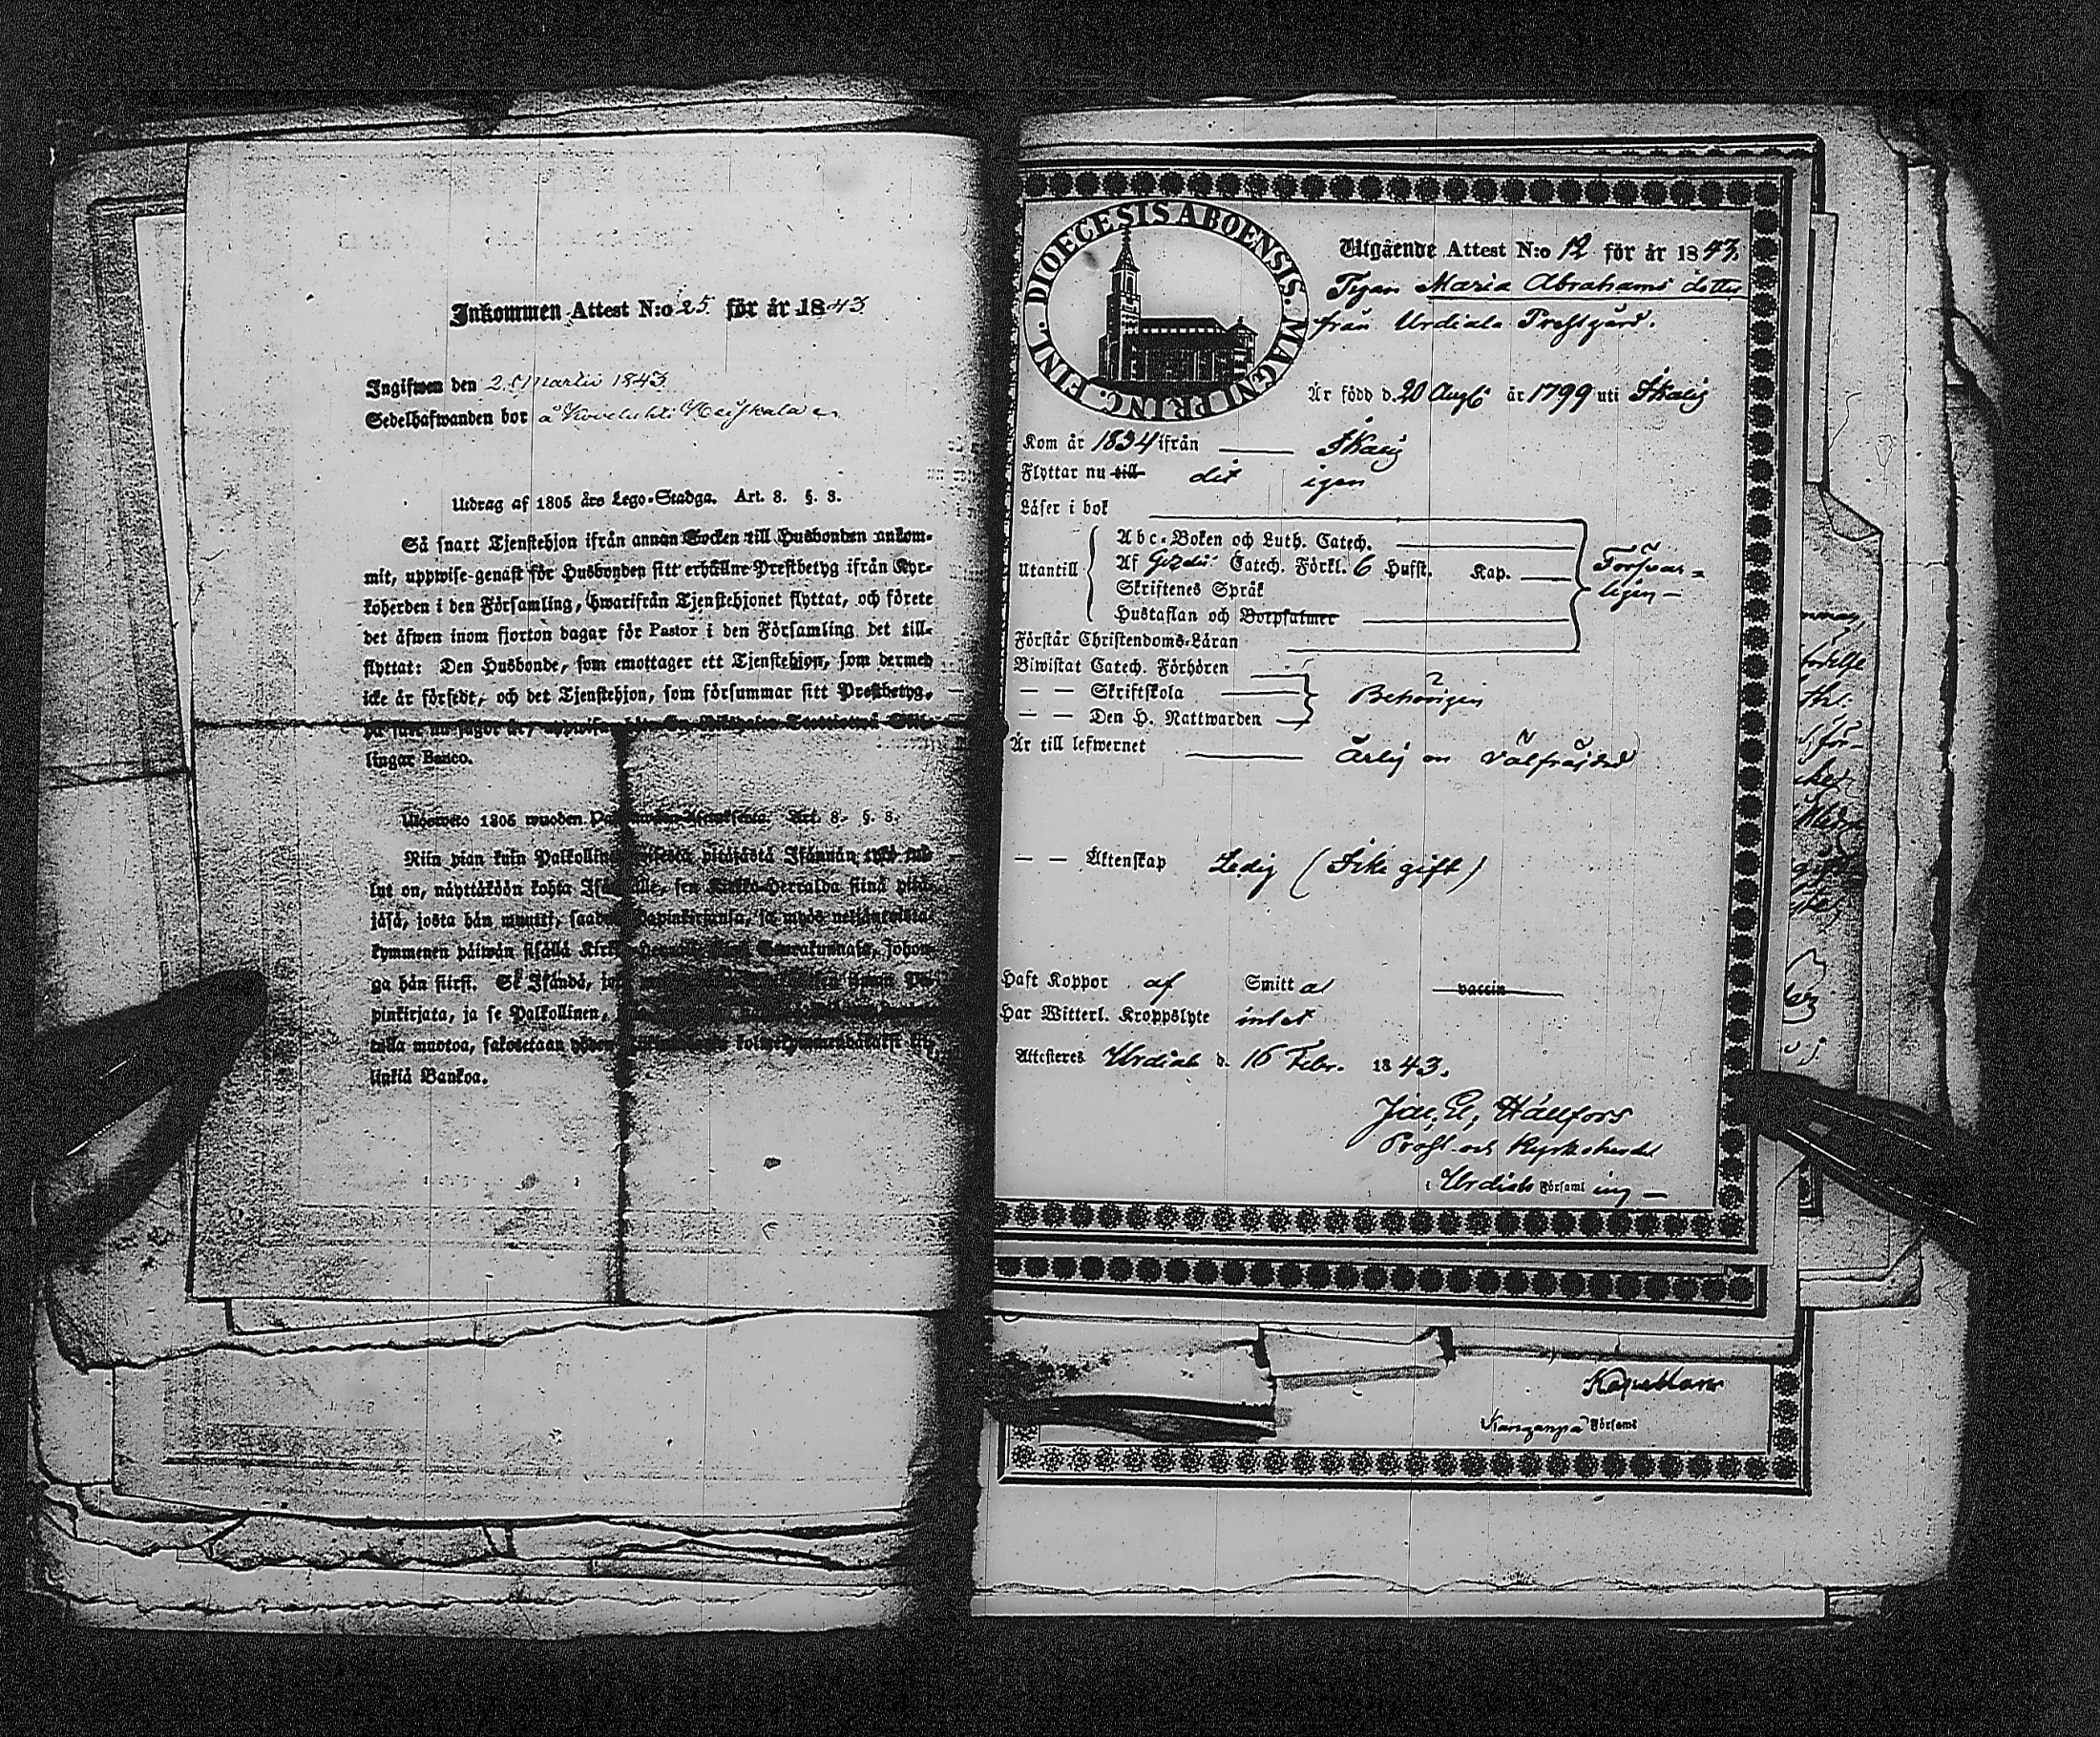 Inkommen Attest N:o 25 för år 1843
Ingifwen den 2 Martii 1843
Sedelhafwanden bor å
Utdrag af 1805 års Lego-Stadga. Art. 8. §. 3.
Så snart Tjenstehjon ifrån annan Socken till Husbonden ankom-
mit, uppwise genast för Husbonden sitt erhållne Prestbetyg ifrån Kyr-
koherden i den Församling, hwarifrån Tjenstehjonet flyttat, och förete
det äfwen inom fjorton dagar för Pastor i den Församling det till-
flyttat: Den Husbonde, som emottager ett Tjenstehjon, som dermed
icke är försedt, och det Tjenstehjon, som försummar sitt Prestbetyg,
på sätt nu sagdt är, uppwisa
lingar Banco.
Ulosweto 1805 wuoden Art. 8. §. 3.
Niin pian kuin Palkollinen pitäjästä Isännän
lut on, näyttäköön kohta sen Kirkko-Herralda siinä pitä-
jäsä, josta hän muutti, Papinkirjansa, ja myös neljäntoista-
kymmenen päiwän sisällä Seurakunnasa, johon-
ga hän siirsi. Se Isändä,
pinkirjata, ja se Palkollinen,
tulla muotoa, sakotetaan kolmekymmendäkaksi kil-
linkiä Bankoa.
DIOECESIS ABOENSIS. MAGNI PRINC. FINL.
Utgående Attest N:o 12 för år 1843.
Pigan Maria Abrahams dotter
från Urdiala Prostgård.
Är född d. 20 Aug. år 1799 uti Ikalis
Kom år 1834 ifrån Ikalis
Flyttar nu till dit igen
Läser i bok
Abc-Boken och Luth. Catech.
Utantill Af Gezelii Catech. Förkl. 6 Hufst. Kap. Försvar-
Skriftenes Språk ligen
Hustaflan och Botpsalmer
Förstår Christendoms-Läran
Biwistat Catech. Förhören
— — Skriftskola Behörigen
— — Den H. Nattwarden
Är till lefwernet Ärlig och Välfräjdad
— — Äktenskap Ledig (Icke gift)
Haft Koppor af Smitta vaccin
Har Witterl. Kroppslyte intet
Attesteres Urdiala d. 16 Febr. 1843.
Hällfors
Prost och Kyrkoherde
i Urdiala Församling
Kapellan
Församl